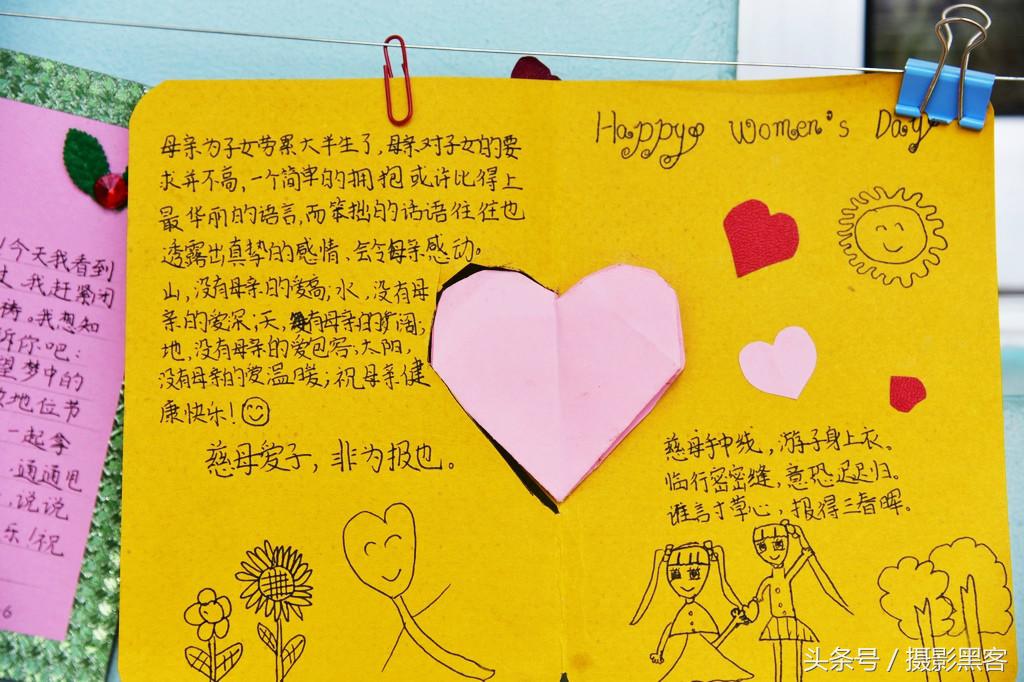 母亲为子女劳累大半生了，母亲对子女的要
求并不高，一个简单的拥抱或许比得上
最华丽的语言，而笨拙的话语往往也
透露出真挚的感情、会令母亲感动。
山，没有母亲的爱高；水，没有母
亲的爱深；天，没有母亲的爱广阔；
地，没有母亲的爱包容；太阳，
没有母亲的爱温暖；祝母亲健
康快乐！
慈母爱子，非为报也。
Happy Women's Day
慈母手中线，游子身上衣。
临行密密缝，意恐迟迟归。
谁言寸草心，报得三春晖。
今天我看到
我赶紧闭
祷。我想知
诉你吧：
望梦中的
地位节
一起拿
，通通甩
，说说
乐！祝
6
头条号 / 摄影黑客